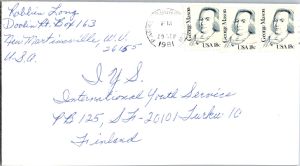 Robbin Long
Doolin Rt. Box 163
New Martinsville, W.V.
26155
U.S.A.
PM
1981
George Mason
USA 18c
George Mason
USA 18c
George Mason
USA 18c
I Y S.
International Youth Service
PB 125, SF-20101 Turku 10
Finland